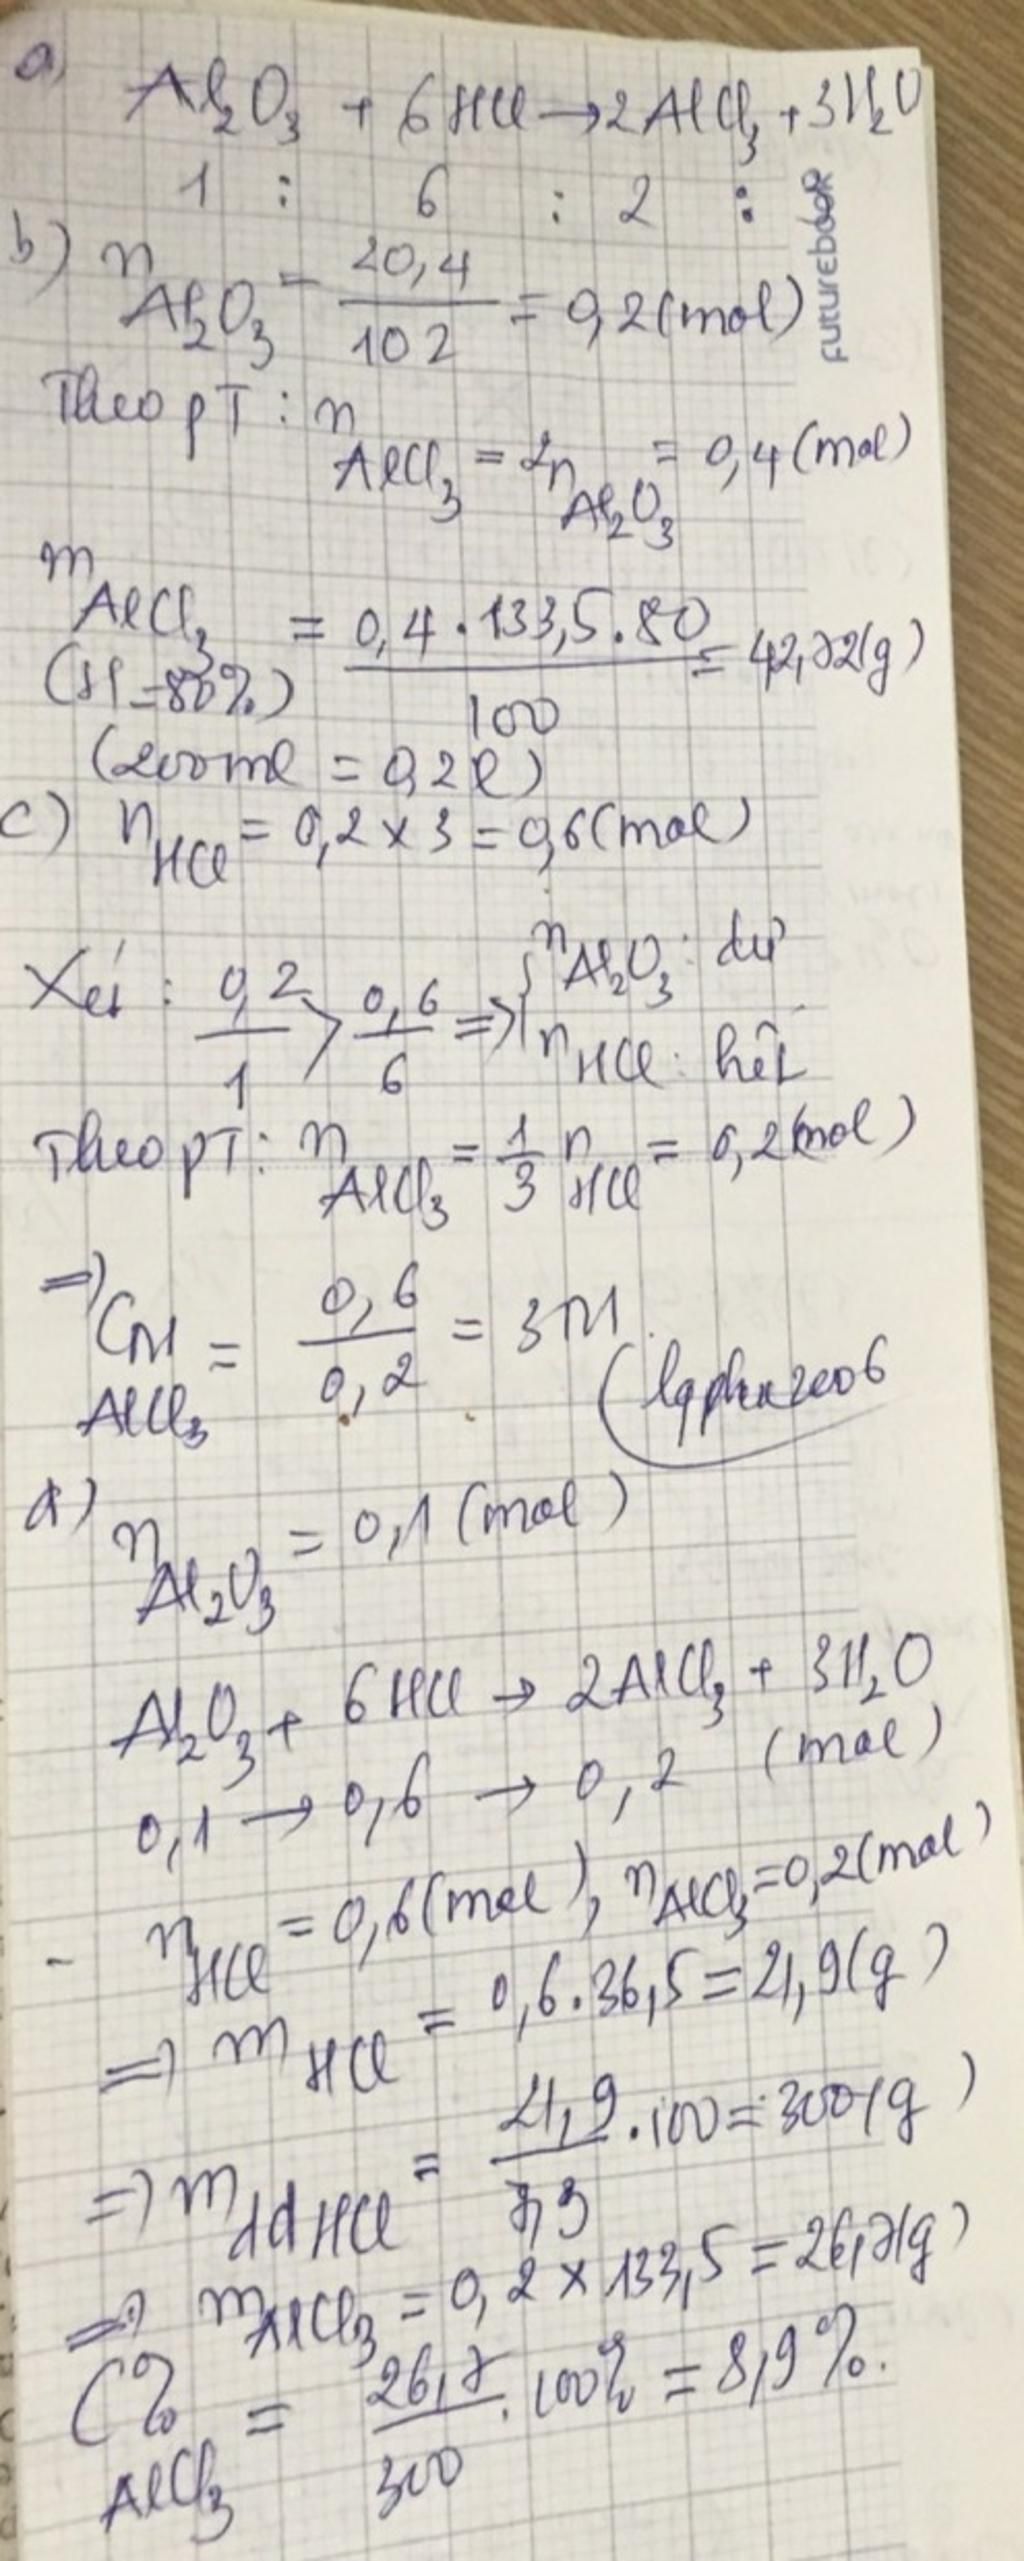 a) Al₂O₃ + 6HCl → 2AlCl₃ + 3H₂O
1 : 6 : 2 :
FUTUREBOOK
b) n Al₂O₃ = 20,4 / 102 = 0,2 (mol)
Theo pT : n AlCl₃ = 2n Al₂O₃ = 0,4 (mol)
m AlCl₃ (H=80%) = 0,4 . 133,5 . 80 / 100 = 42,72 (g)
(200ml = 0,2l)
c) n HCl = 0,2 × 3 = 0,6 (mol)
Xét : 0,2 / 1 > 0,6 / 6 => { n Al₂O₃ : dư
n HCl : hết
Theo pT : n AlCl₃ = 1/3 n HCl = 0,2 (mol)
=> CM AlCl₃ = 0,6 / 0,2 = 3M
d) n Al₂O₃ = 0,1 (mol)
Al₂O₃ + 6HCl → 2AlCl₃ + 3H₂O
0,1 → 0,6 → 0,2 (mol)
- n HCl = 0,6 (mol), n AlCl₃ = 0,2 (mol)
=> m HCl = 0,6 . 36,5 = 21,9 (g)
=> m dd HCl = 21,9 / 7,3 . 100 = 300 (g)
=> m AlCl₃ = 0,2 × 133,5 = 26,7 (g)
C% AlCl₃ = 26,7 / 300 . 100% = 8,9%.